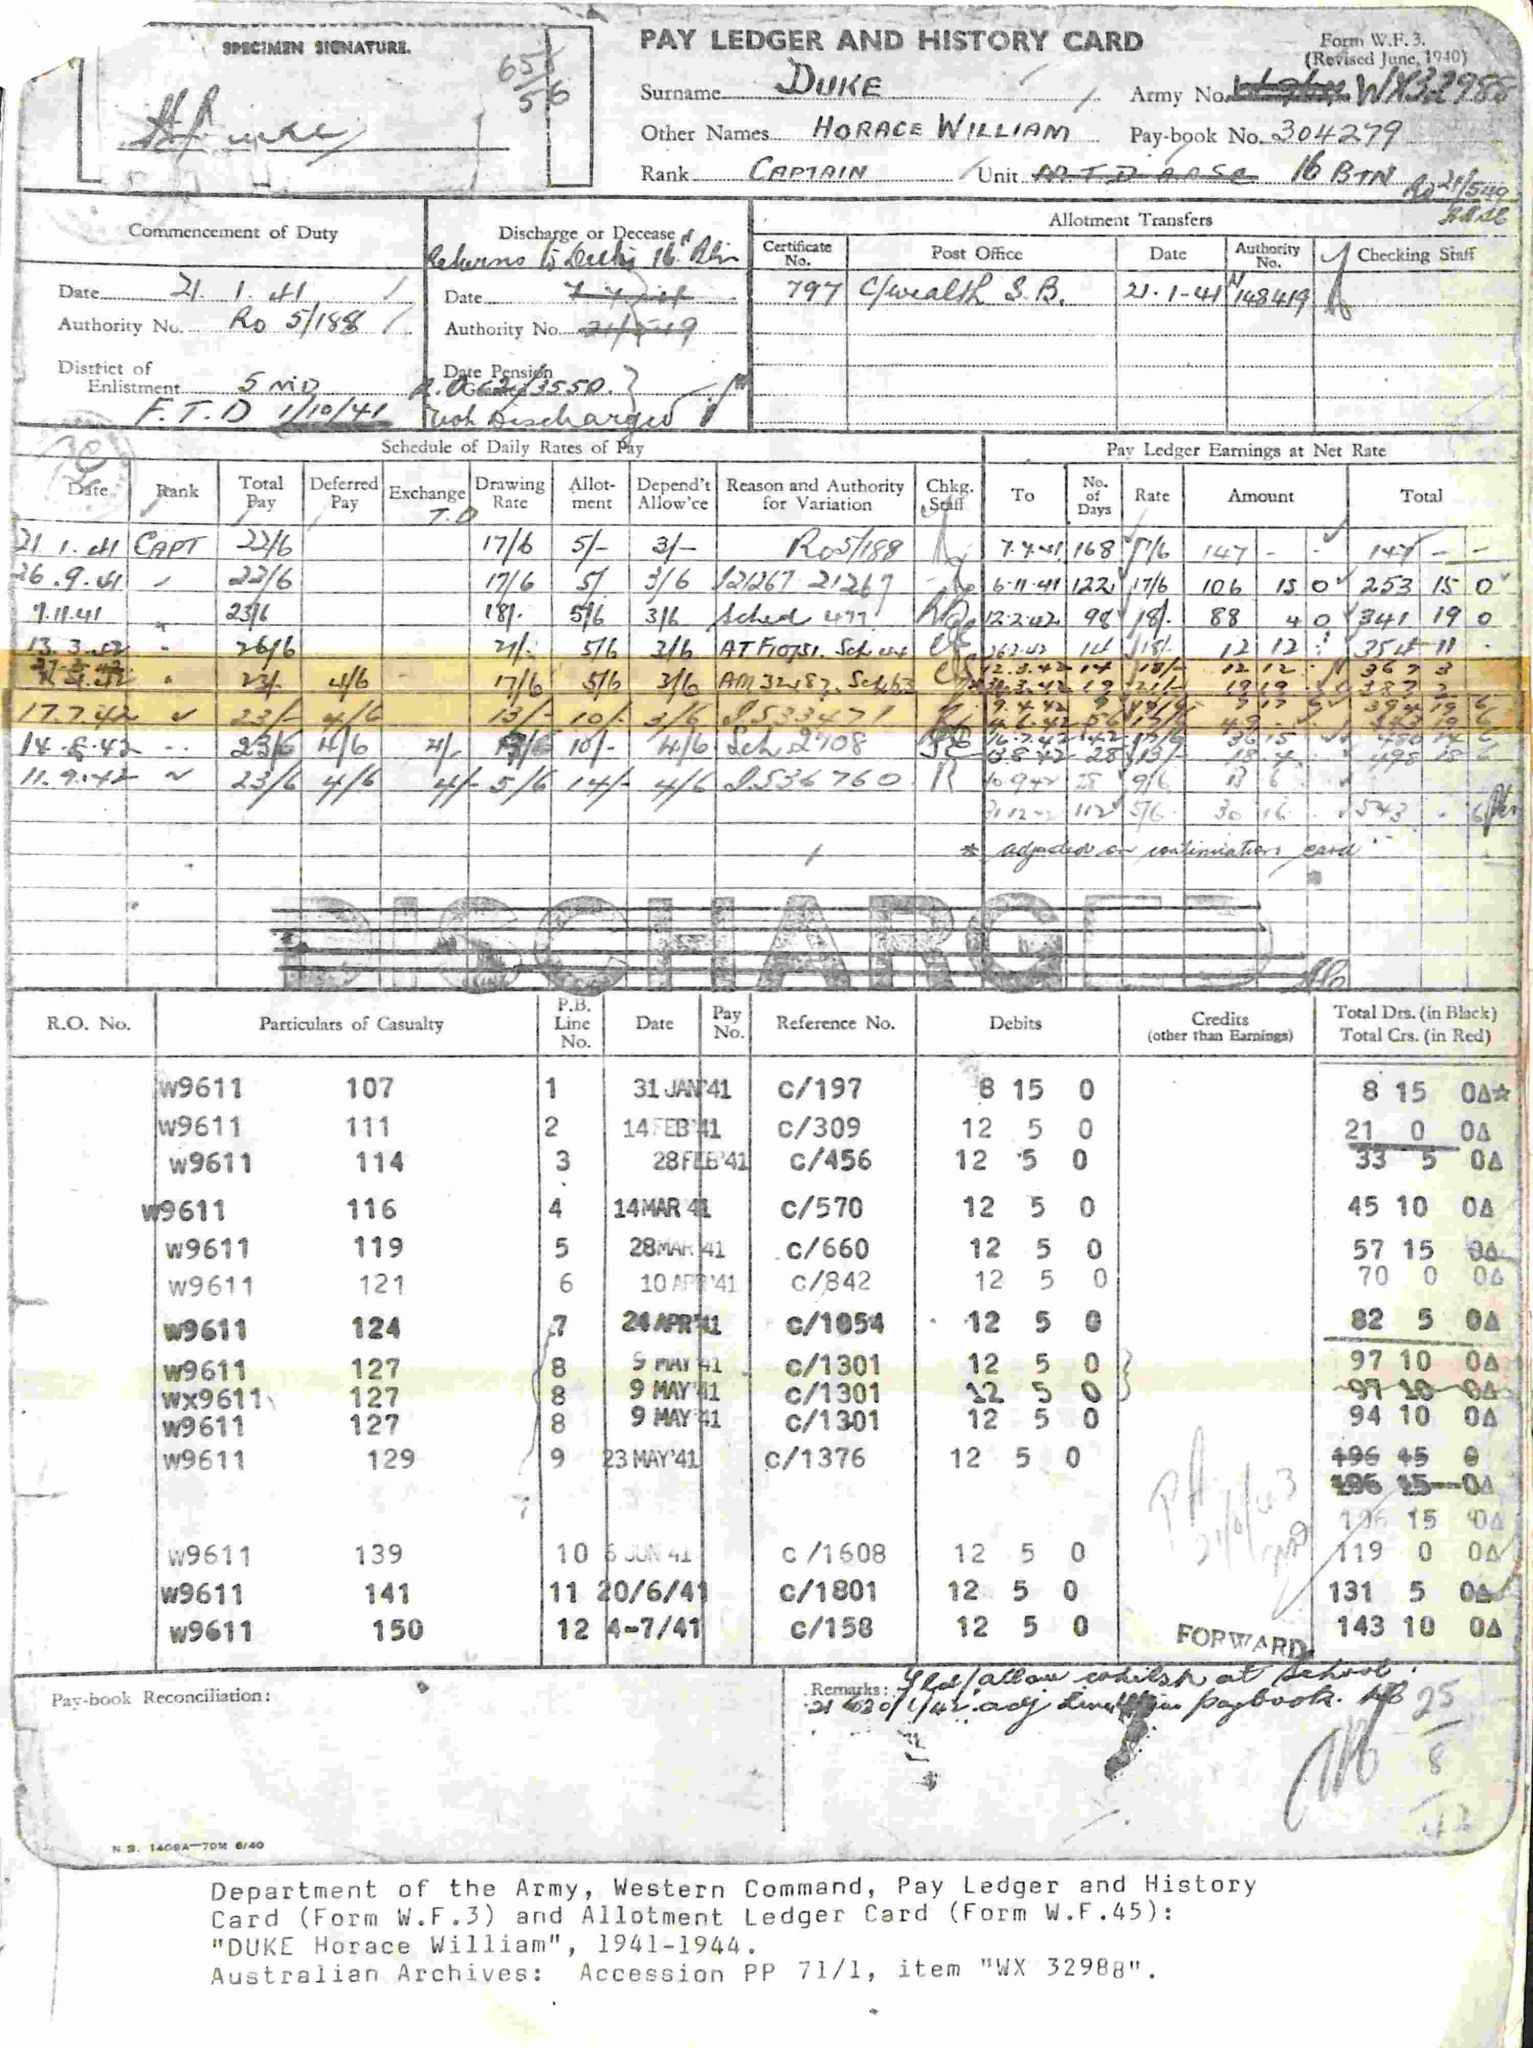 SPECIMEN SIGNATURE.
PAY LEDGER AND HISTORY CARD
Form W.F.3.
(Revised June, 1940)
Surname DUKE
Army No. WX32988
Other Names HORACE WILLIAM
Pay-book No. 304279
Rank CAPTAIN Unit 16 BTN
Commencement of Duty
Date 21. 1. 41
Authority No. Ro 5/188
District of
Enlistment 5 MD
F. T. D 1/10/41
Discharge or Decease
Date
Authority No.
Date Pension
Not Discharged
Allotment Transfers
Certificate No. Post Office Date Authority No. Checking Staff
797 C/wealth S.B. 21-1-41 148419
Schedule of Daily Rates of Pay
Pay Ledger Earnings at Net Rate
Date Rank Total Pay Deferred Pay Exchange Drawing Rate Allotment Depend't Allow'ce Reason and Authority for Variation Chkg. Staff To No. of Days Rate Amount Total
T.D
21. 1. 41 CAPT 22/6 17/6 5/- 3/- Ro5/188 7.7.41 168 17/6 147 - - 147 - -
26. 9. 41 22/6 17/6 5/ 3/6 21267 6-11-41 122 17/6 106 15 0 253 15 0
7.11.41 23/6 18/. 5/6 3/6 Sched 477 12.2.42 98 18/. 88 4 0 341 19 0
26/6 21/- 5/6 3/6 14 18/. 12 12 354 11
23/- 4/6 17/6 5/6 3/6 12.3.42 14 18/- 12 12 367 3
17.7.42 23/- 4/6 13/- 10/- 3/6 J.533471
14. 8. 42 23/6 4/6 4/. 10/- 4/6 Sch 2908
11. 9. 42 23/6 4/6 4/- 5/6 14/- 4/6 J.536760 R 10.9.42 28 9/6 13 6
112 5/6 30 16 543
* adjusted on continuation card
DISCHARGED
R.O. No. Particulars of Casualty P.B. Line No. Date Pay No. Reference No. Debits Credits (other than Earnings) Total Drs. (in Black) Total Crs. (in Red)
W9611 107 1 31 JAN'41 C/197 8 15 0 8 15 0Δ☆
W9611 111 2 14 FEB'41 C/309 12 5 0 21 0 0Δ
W9611 114 3 28 FEB'41 C/456 12 5 0 33 5 0Δ
W9611 116 4 14 MAR'41 C/570 12 5 0 45 10 0Δ
W9611 119 5 28 MAR'41 C/660 12 5 0 57 15 0Δ
W9611 121 6 10 APR'41 C/842 12 5 0 70 0 0Δ
W9611 124 7 24 APR'41 C/1054 12 5 0 82 5 0Δ
W9611 127 8 9 MAY'41 C/1301 12 5 0 97 10 0Δ
WX9611 127 8 9 MAY'41 C/1301 12 5 0 97 10 0Δ
W9611 127 8 9 MAY'41 C/1301 12 5 0 94 10 0Δ
W9611 129 9 23 MAY'41 C/1376 12 5 0 196 15 0
196 15 0Δ
106 15 0Δ
W9611 139 10 6 JUN 41 C/1608 12 5 0 119 0 0Δ
W9611 141 11 20/6/41 C/1801 12 5 0 131 5 0Δ
W9611 150 12 4-7/41 C/158 12 5 0 143 10 0Δ
FORWARD
Pay-book Reconciliation:
Remarks: allow whilst at School
adj paybook.
25
8
42
N.S. 1409A—70M 6/40
Department of the Army, Western Command, Pay Ledger and History
Card (Form W.F.3) and Allotment Ledger Card (Form W.F.45):
"DUKE Horace William", 1941-1944.
Australian Archives: Accession PP 71/1, item "WX 32988".